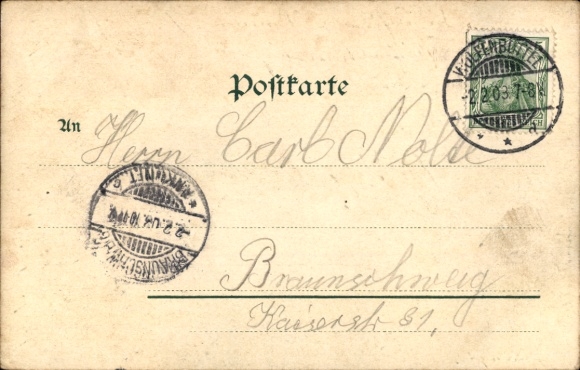 WOLFENBÜTTEL
2.2.03.7-8V.
Postkarte
An
Herrn Carl Nolte
ANKUNFT
2.2.03.10-11V.
BRAUNSCHWEIG
Braunschweig
Kaiserstr 31,